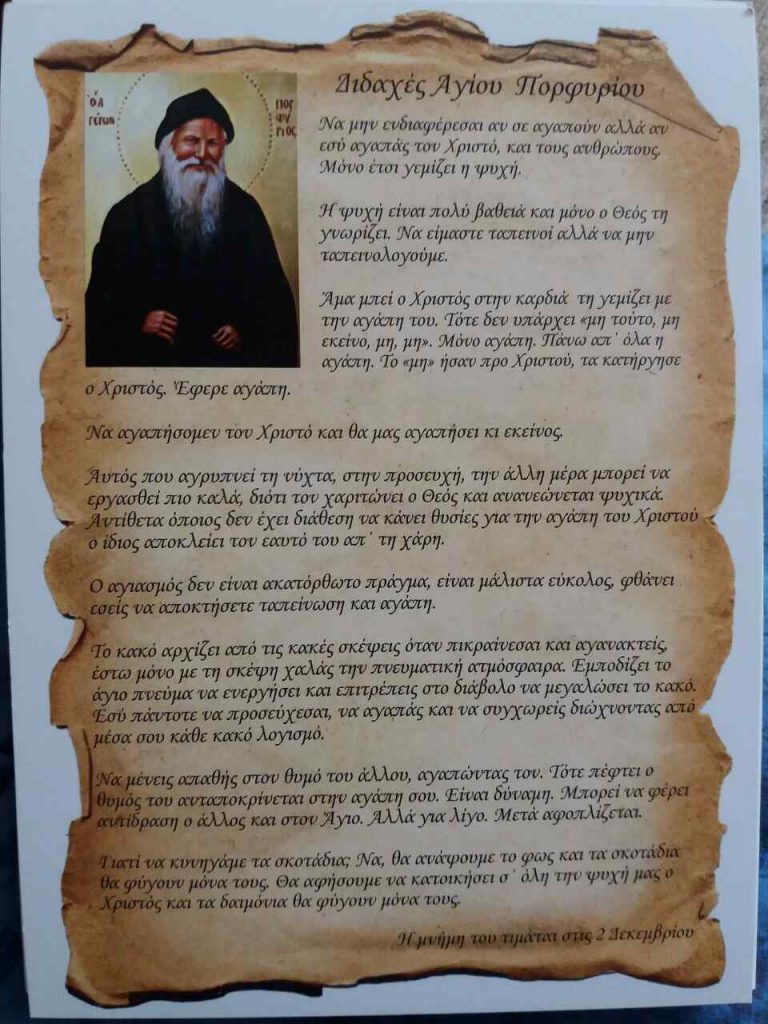 Διδαχές Αγίου Πορφυρίου
ὁ Ἁ
ΓΕΡΩΝ
ΠΟΡ
ΦΥ
ΡΙΟΣ
Να μην ενδιαφέρεσαι αν σε αγαπούν αλλά αν
εσύ αγαπάς τον Χριστό, και τους ανθρώπους.
Μόνο έτσι γεμίζει η ψυχή.
Η ψυχή είναι πολύ βαθειά και μόνο ο Θεός τη
γνωρίζει. Να είμαστε ταπεινοί αλλά να μην
ταπεινολογούμε.
Άμα μπεί ο Χριστός στην καρδιά τη γεμίζει με
την αγάπη του. Τότε δεν υπάρχει «μη τούτο, μη
εκείνο, μη, μη». Μόνο αγάπη. Πάνω απ΄ όλα η
αγάπη. Το «μη» ήσαν προ Χριστού, τα κατήργησε
ο Χριστός. Έφερε αγάπη.
Να αγαπήσομεν τον Χριστό και θα μας αγαπήσει κι εκείνος.
Αυτός που αγρυπνεί τη νύχτα, στην προσευχή, την άλλη μέρα μπορεί να
εργασθεί πιο καλά, διότι τον χαριτώνει ο Θεός και ανανεώνεται ψυχικά.
Αντίθετα όποιος δεν έχει διάθεση να κάνει θυσίες για την αγάπη του Χριστού
ο ίδιος αποκλείει τον εαυτό του απ΄ τη χάρη.
Ο αγιασμός δεν είναι ακατόρθωτο πράγμα, είναι μάλιστα εύκολος, φθάνει
εσείς να αποκτήσετε ταπείνωση και αγάπη.
Το κακό αρχίζει από τις κακές σκέψεις όταν πικραίνεσαι και αγανακτείς,
έστω μόνο με τη σκέψη χαλάς την πνευματική ατμόσφαιρα. Εμποδίζει το
άγιο πνεύμα να ενεργήσει και επιτρέπεις στο διάβολο να μεγαλώσει το κακό.
Εσύ πάντοτε να προσεύχεσαι, να αγαπάς και να συγχωρείς διώχνοντας από
μέσα σου κάθε κακό λογισμό.
Να μένεις απαθής στον θυμό του άλλου, αγαπώντας τον. Τότε πέφτει ο
θυμός του ανταποκρίνεται στην αγάπη σου. Είναι δύναμη. Μπορεί να φέρει
αντίδραση ο άλλος και στον Άγιο. Αλλά για λίγο. Μετά αφοπλίζεται.
Γιατί να κυνηγάμε τα σκοτάδια; Να, θα ανάψουμε το φως και τα σκοτάδια
θα φύγουν μόνα τους. Θα αφήσουμε να κατοικήσει σ΄ όλη την ψυχή μας ο
Χριστός και τα δαιμόνια θα φύγουν μόνα τους.
Η μνήμη του τιμάται στις 2 Δεκεμβρίου